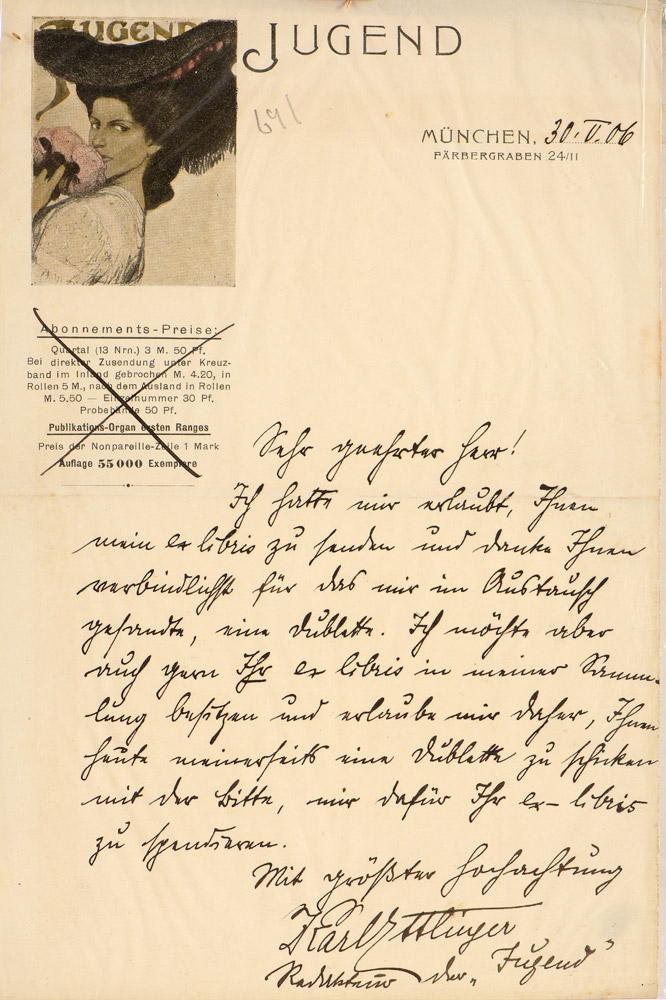 JUGEND
JUGEND
691
MÜNCHEN, 30. V. 06
FÄRBERGRABEN 24/II
Abonnements-Preise:
Quartal (13 Nrn.) 3 M. 50 Pf.
Bei direkter Zusendung unter Kreuz-
band im Inland gebrochen M. 4.20, in
Rollen 5 M., nach dem Ausland in Rollen
M. 5.50 — Einzelnummer 30 Pf.
Probebände 50 Pf.
Publikations-Organ ersten Ranges
Preis der Nonpareille-Zeile 1 Mark
Auflage 55000 Exemplare
Sehr geehrter Herr!
Ich hatte mir erlaubt, Ihnen
mein ex libris zu senden und danke Ihnen
verbindlichst für das mir im Austausch
gesandte, eine Dublette. Ich möchte aber
auch gern Ihr ex libris in meiner Samm-
lung besitzen und erlaube mir daher, Ihnen
heute meinerseits eine Dublette zu schicken
mit der Bitte, mir dafür Ihr ex-libris
zu spendieren.
Mit größter Hochachtung
Karl Ettlinger
Redakteur der „Jugend"